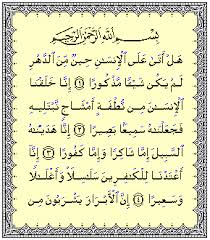 بِسْمِ ٱللَّهِ ٱلرَّحْمَٰنِ ٱلرَّحِيمِ
هَلْ أَتَىٰ عَلَى ٱلْإِنسَٰنِ حِينٌ مِّنَ ٱلدَّهْرِ
لَمْ يَكُن شَيْـًٔا مَّذْكُورًا ١ إِنَّا خَلَقْنَا
ٱلْإِنسَٰنَ مِن نُّطْفَةٍ أَمْشَاجٍ نَّبْتَلِيهِ
فَجَعَلْنَٰهُ سَمِيعًۢا بَصِيرًا ٢ إِنَّا هَدَيْنَٰهُ
ٱلسَّبِيلَ إِمَّا شَاكِرًا وَإِمَّا كَفُورًا ٣ إِنَّآ
أَعْتَدْنَا لِلْكَٰفِرِينَ سَلَٰسِلَا۟ وَأَغْلَٰلًا
وَسَعِيرًا ٤ إِنَّ ٱلْأَبْرَارَ يَشْرَبُونَ مِن